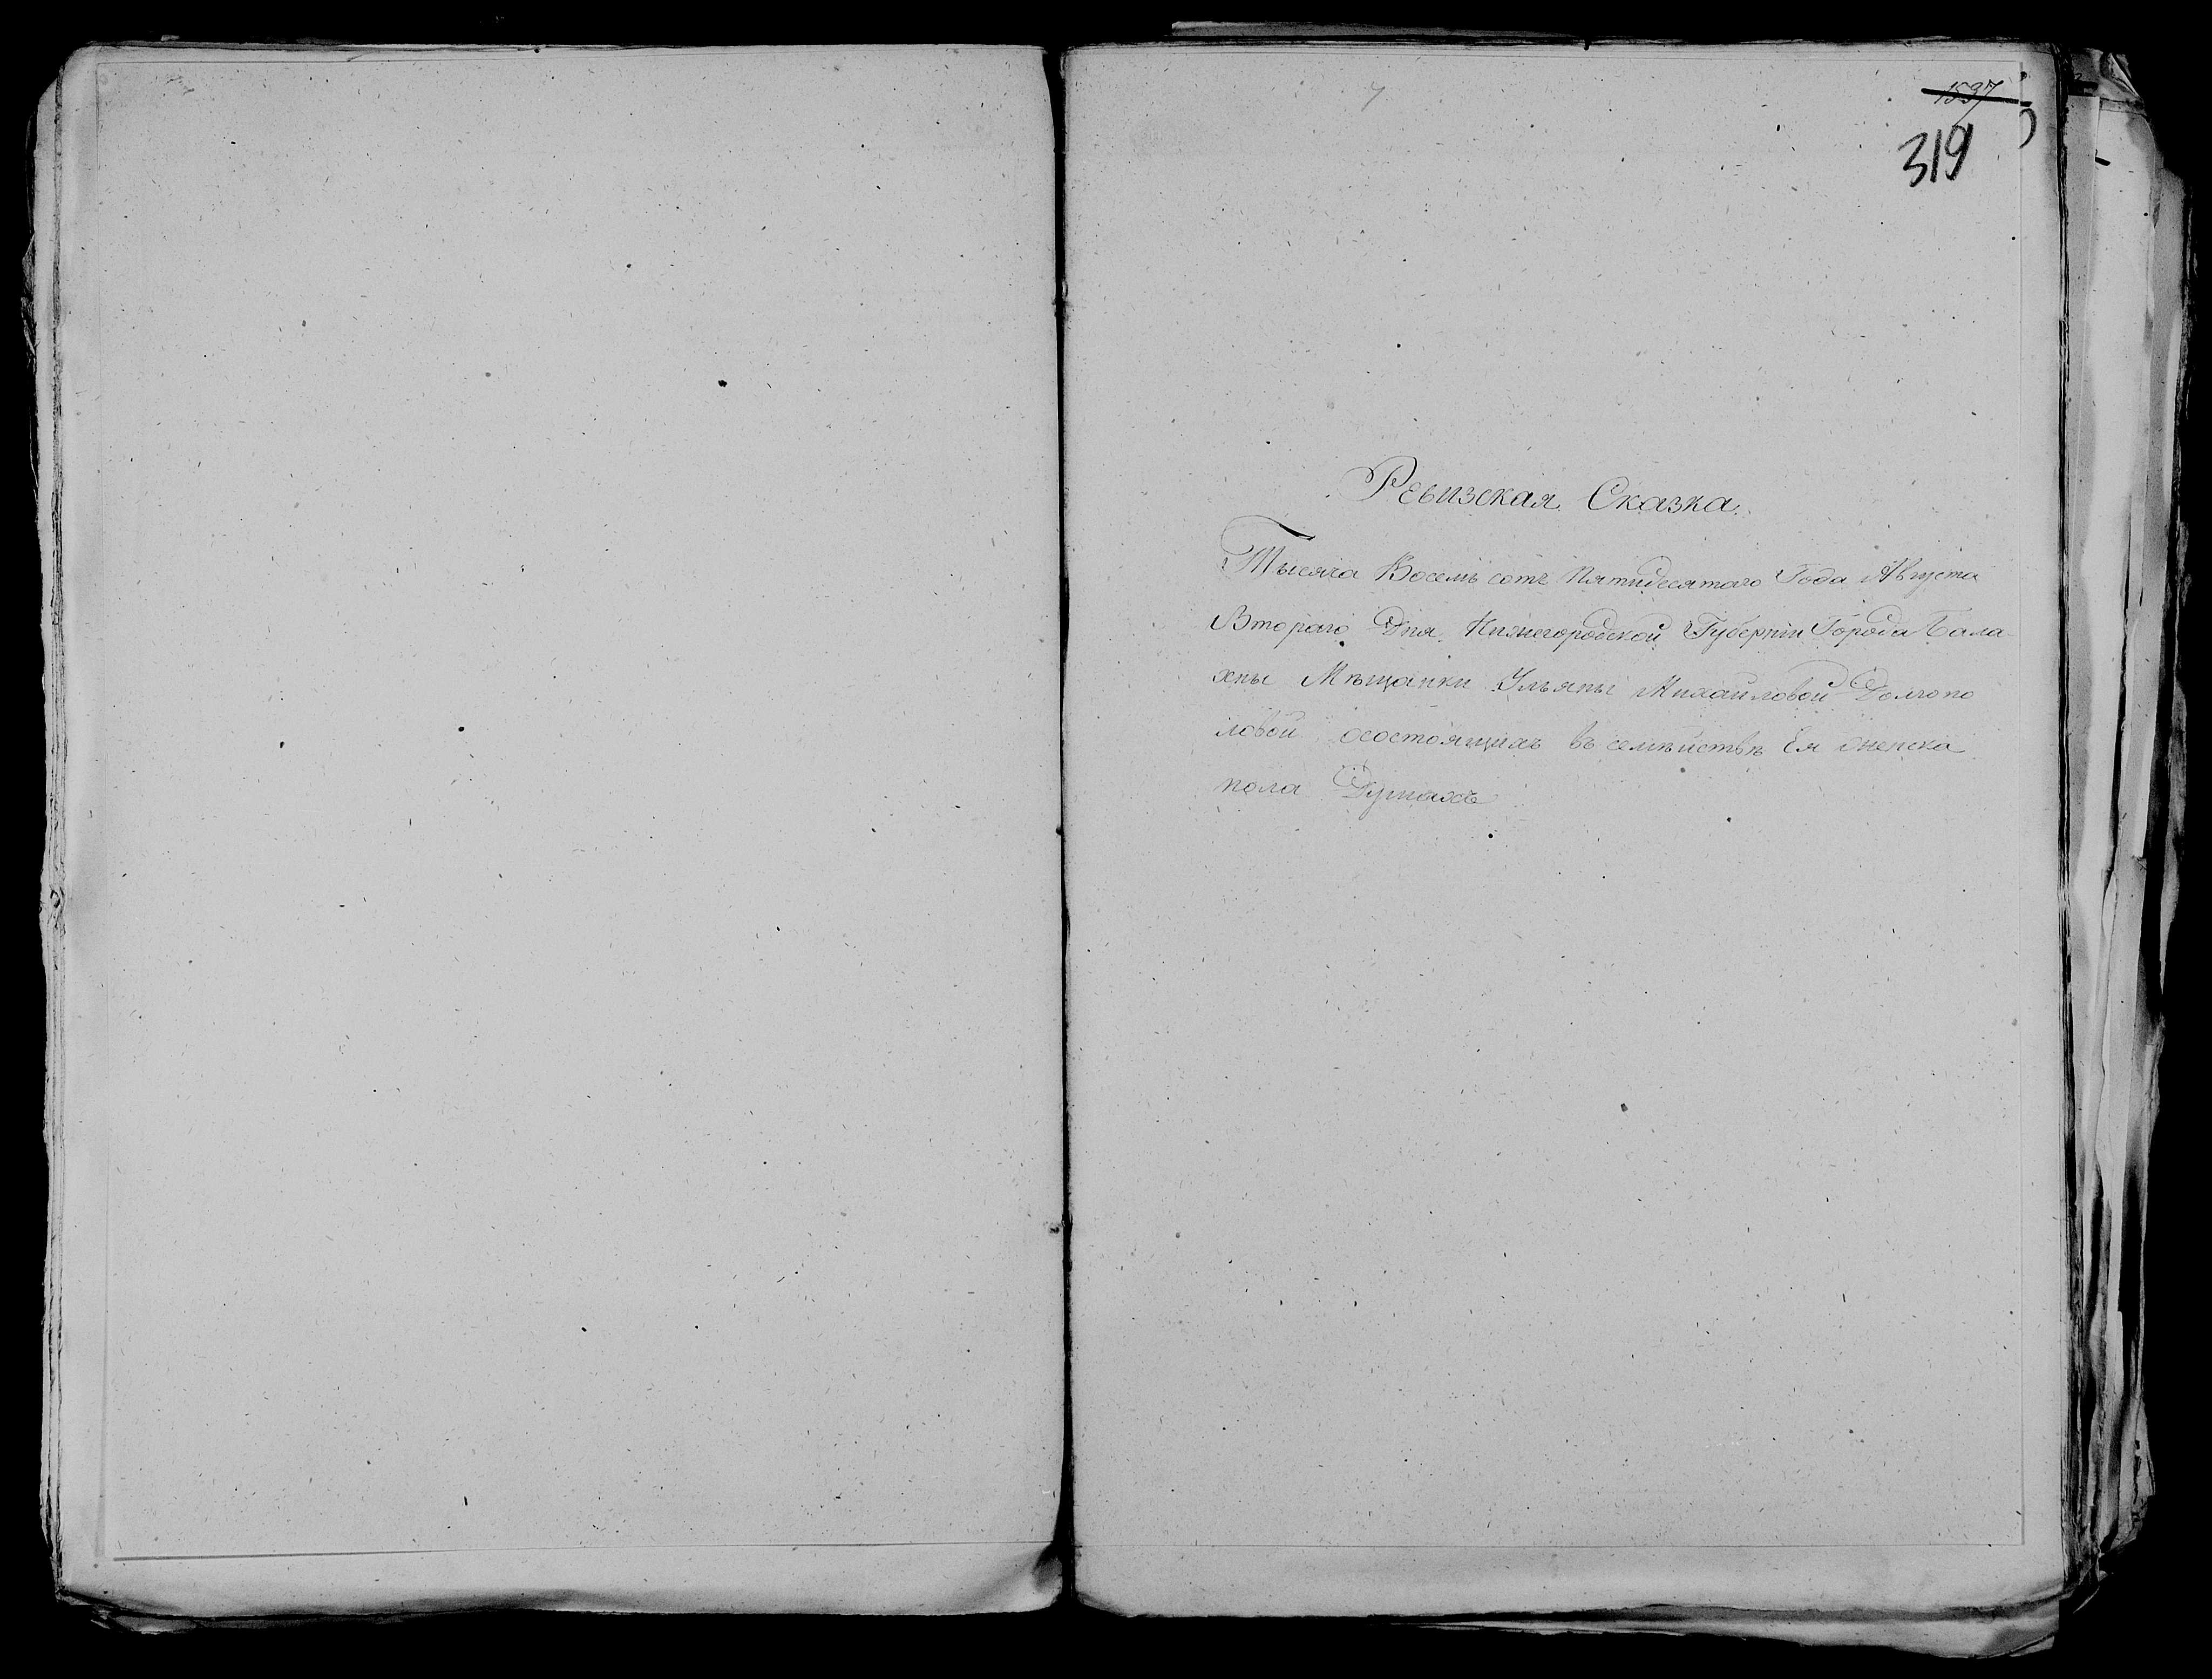 1597
319
Ревизская Сказка.
Тысяча Восемь сотъ Пятидесятаго Года Августа
Втораго Дня Нижегородской Губерніи Города Бала-
хны Мѣщанки Ульяны Михайловой Долгопо
ловой осостоящихъ въ семѣйствѣ Ея женска
пола Душахъ